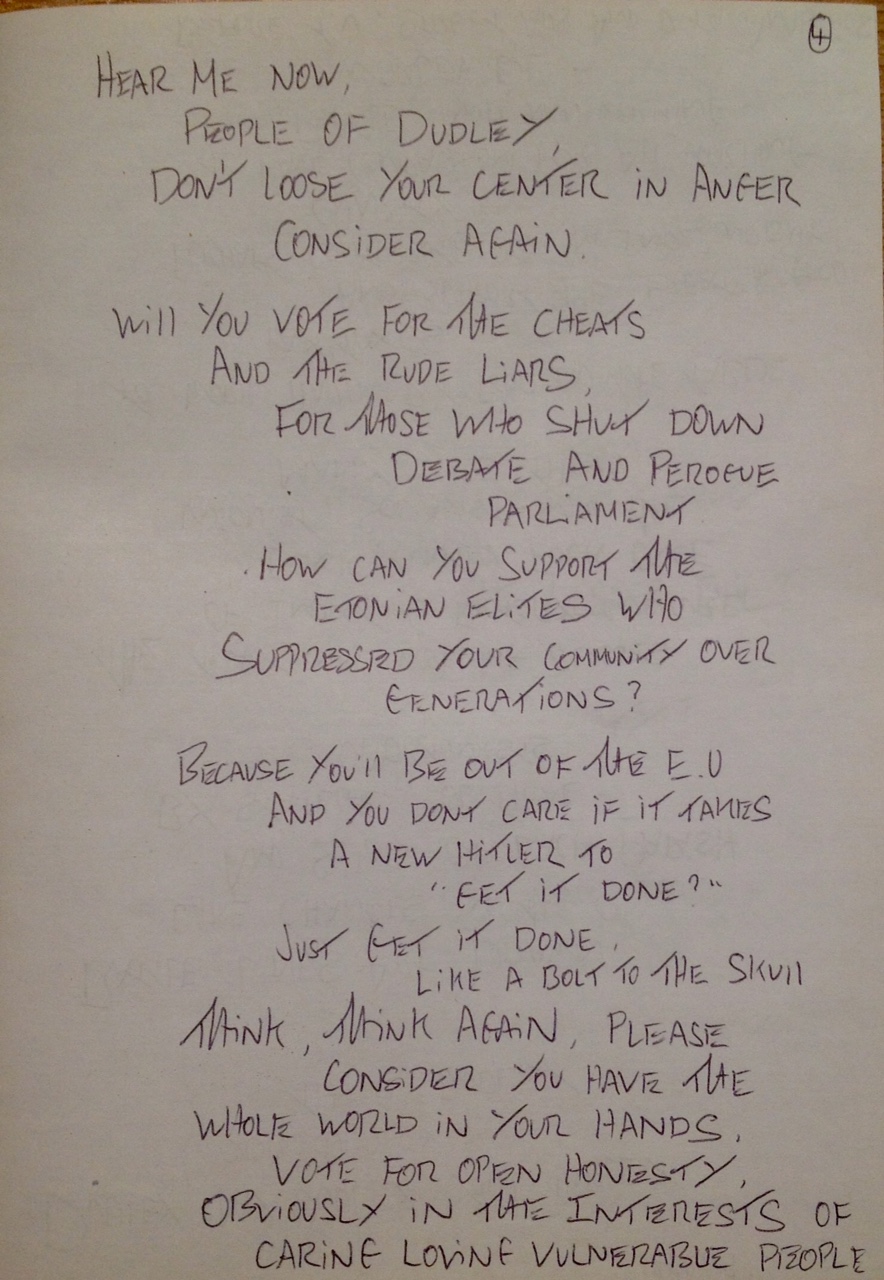 4
HEAR ME NOW,
PEOPLE OF DUDLEY,
DON'T LOOSE YOUR CENTER IN ANGER
CONSIDER AGAIN.
Will YOU VOTE FOR THE CHEATS
AND THE RUDE LiARS,
FOR THOSE WHO SHUT DOWN
DEBATE AND PEROGUE
PARLIAMENT
. HOW CAN YOU SUPPORT THE
ETONIAN ELITES WHO
SUPPRESSED YOUR COMMUNITY OVER
GENERATIONS?
BECAUSE YOU'll BE OUT OF THE E.U
AND YOU DONT CARE IF IT TAKES
A NEW HITLER TO
"GET IT DONE?"
JUST GET IT DONE,
LIKE A BOLT TO THE SKUll
THINK, THINK AGAIN, PLEASE
CONSIDER YOU HAVE THE
WHOLE WORLD IN YOUR HANDS,
VOTE FOR OPEN HONESTY,
OBVIOUSLY IN THE INTERESTS OF
CARING LOVING VULNERABLE PEOPLE